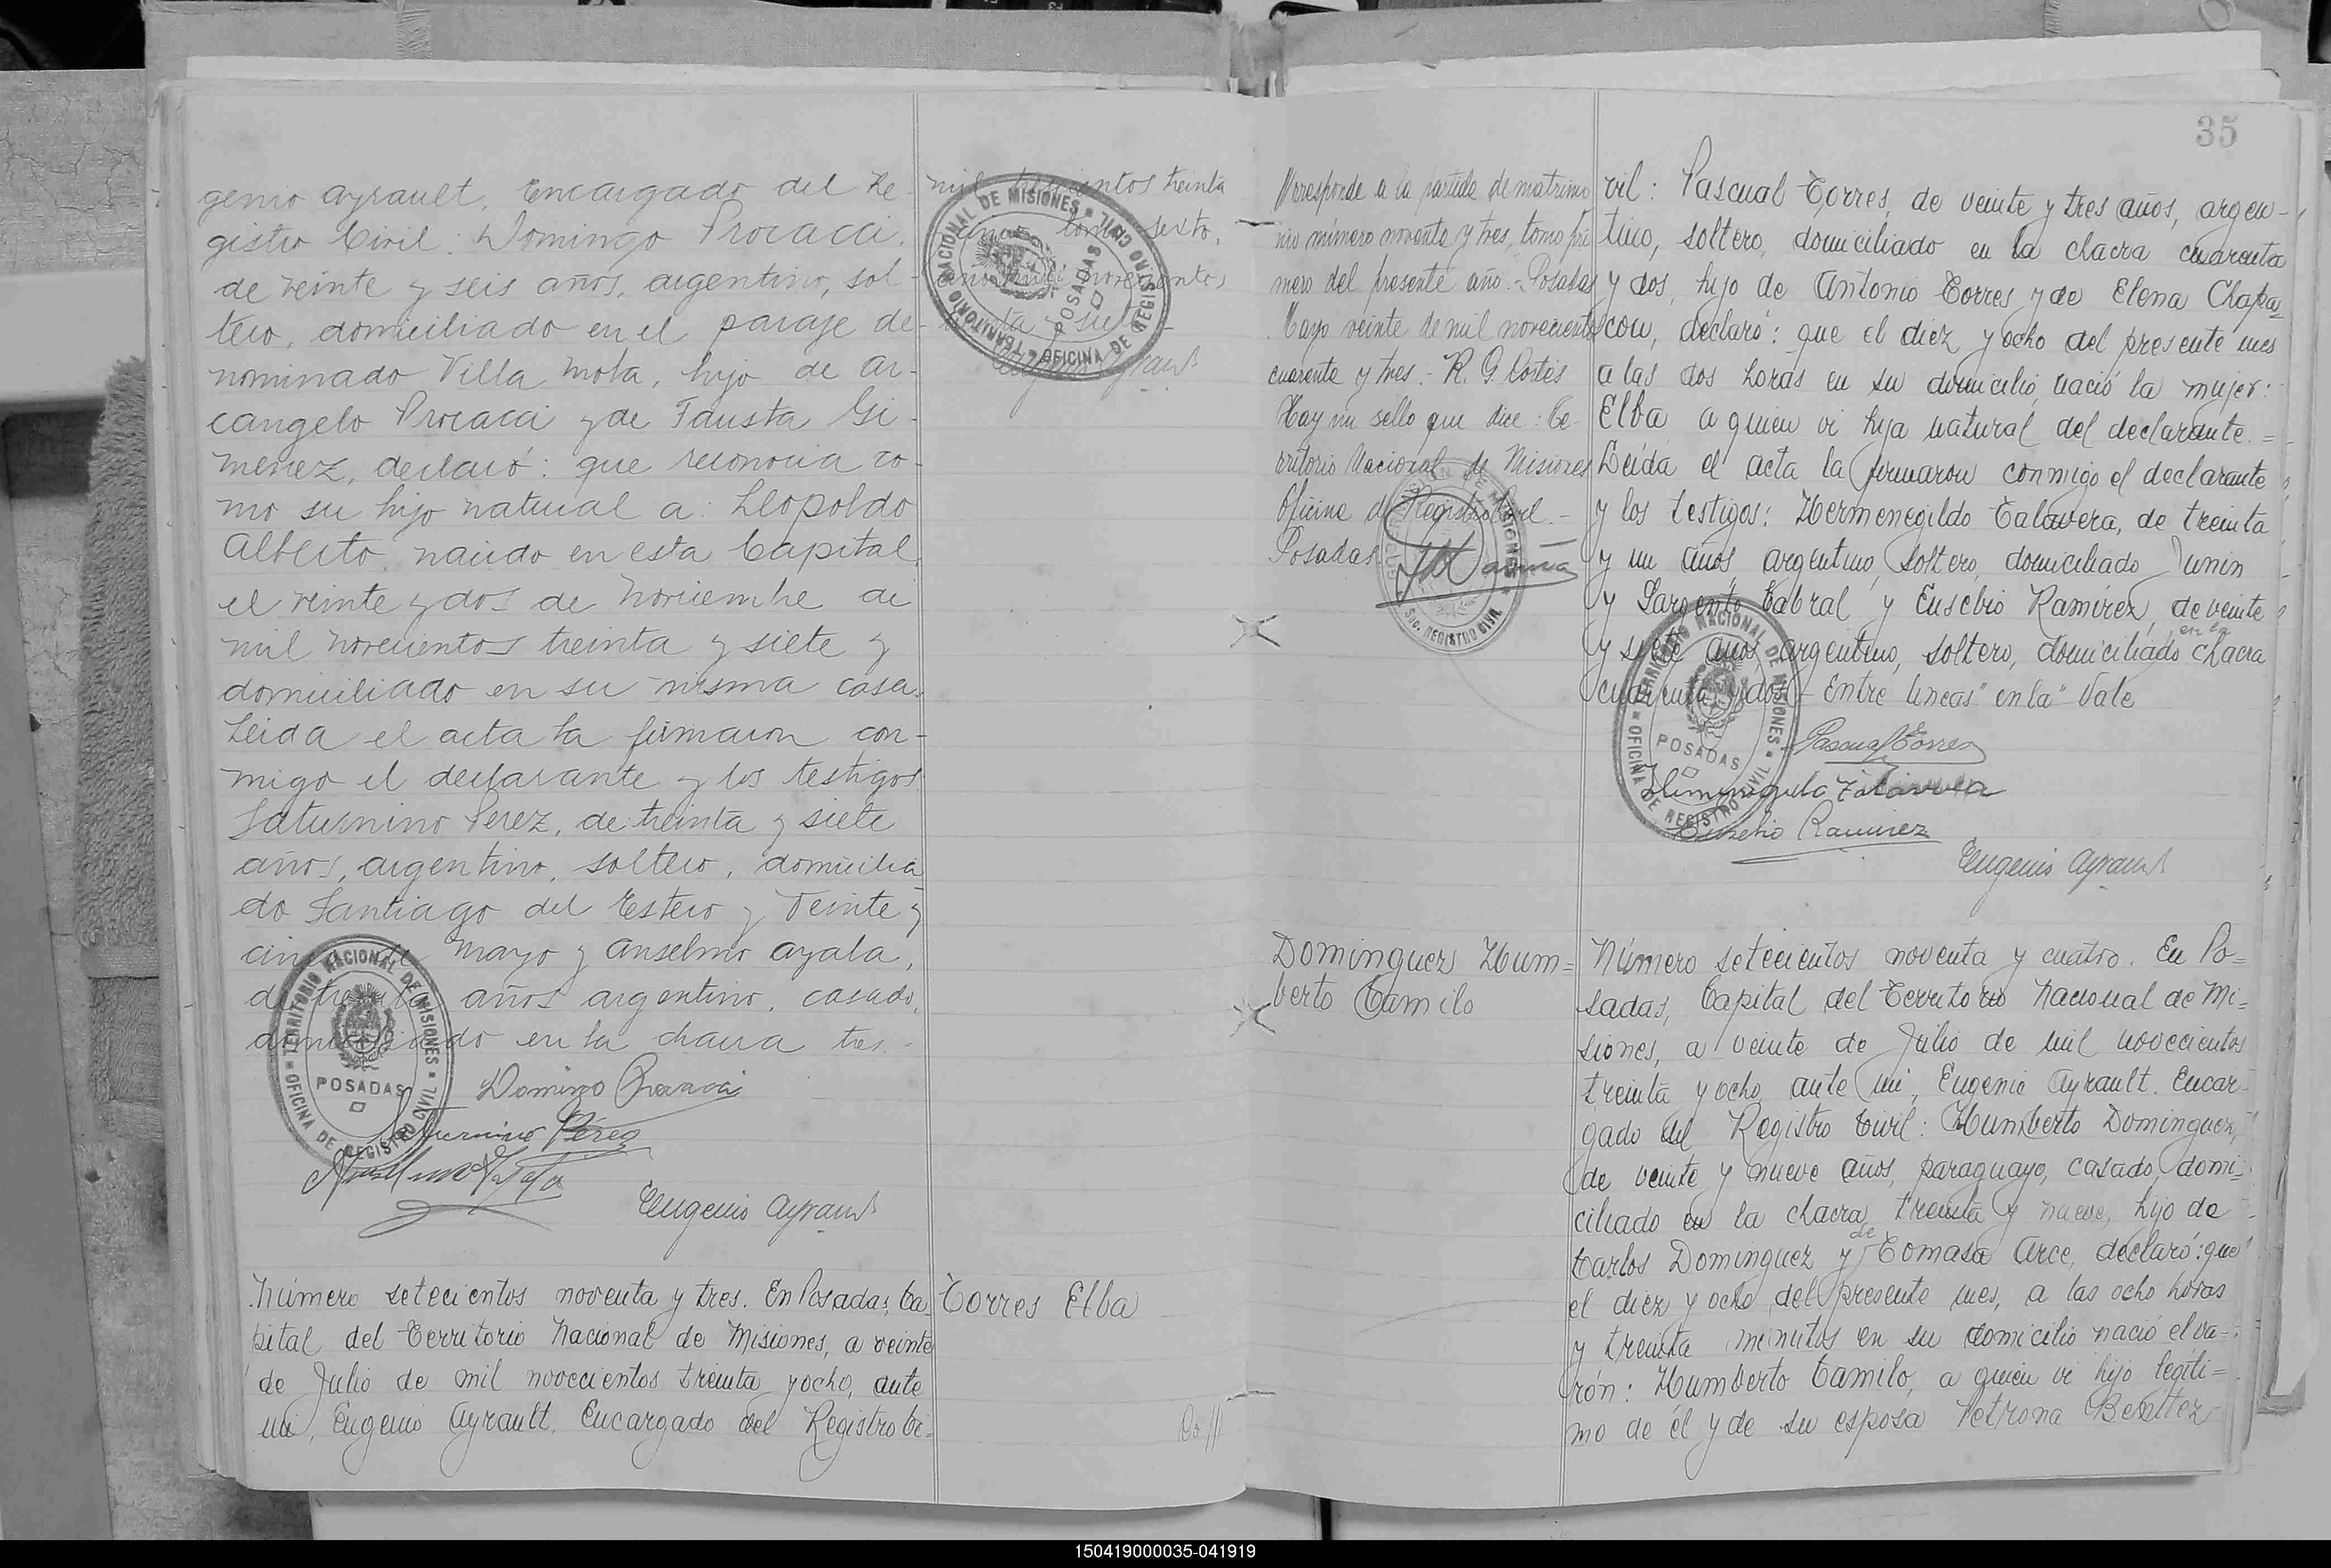 genio Ayrault, Encargado del Re-
gistro Civil: Domingo Procacci,
de veinte y seis años, argentino, sol-
tero, domiciliado en el paraje de-
nominado Villa Mola, hijo de Ar-
cangelo Procacci y de Fausta Gi-
menez, declaró: que reconocia co-
mo su hijo natural a: Leopoldo
Alberto, nacido en esta Capital
el veinte y dos de Noviembre de
mil novecientos treinta y siete y
domiciliado en su misma casa.
Leida el acta la firmaron con-
migo el declarante y los testigos
Saturnino Perez, de treinta y siete
años, argentino, soltero, domicilia
do Santiago del Estero y Veinte y
cinco de Mayo y Anselmo Ayala,
de treinta años argentino, casado,
domiciliado en la chacra tres.-
Domingo Procacci
Saturnino Pérez
Anselmo Ayala
Eugenio Ayrault
TERRITORIO NACIONAL DE MISIONES
POSADAS
OFICINA DE REGISTRO CIVIL
mil novecientos treinta
tomo sexto,
año mil novecientos
treinta y siete
Eugenio Ayrault
TERRITORIO NACIONAL DE MISIONES
POSADAS
OFICINA DE REGISTRO CIVIL
Número setecientos noventa y tres. En Posadas, Ca
pital del Territorio Nacional de Misiones, a veinte
de Julio de mil novecientos treinta y ocho, ante
mi, Eugenio Ayrault. Encargado del Registro Ci=
Torres Elba
35
Corresponde a la partida de matrimo
nio número noventa y tres, tomo pri
mero del presente año.- Posadas
Mayo veinte de mil novecientos
cuarenta y tres.- R. G. Cortés
Hay un sello que dice: Te-
rritorio Nacional de Misiones
Oficina de Registro Civil.-
Posadas
vil: Pascual Torres, de veinte y tres años, argen-
tino, soltero, domiciliado en la chacra cuarenta
y dos, hijo de Antonio Torres y de Elena Chapa=
cou, declaró: que el diez y ocho del presente mes
a las dos horas en su domicilio, nació la mujer:
Elba a quien vi hija natural del declarante.=
Leida el acta la firmaron conmigo el declarante
y los testigos: Hermenegildo Talavera, de treinta
y un años argentino, soltero, domiciliado Junin
y Sargento Cabral y Eusebio Ramirez, de veinte
en la
y siete años argentino, soltero, domiciliado chacra
cuarenta y dos.- Entre lineas "en la" Vale
Pascual Torres
Hermenegildo Talavera
Eusebio Ramirez
Eugenio Ayrault
TERRITORIO NACIONAL DE MISIONES
POSADAS
OFICINA DE REGISTRO CIVIL
Dominguez Hum=
berto Camilo
Número setecientos noventa y cuatro. En Po=
sadas, Capital del Territorio Nacional de Mi=
siones, a veinte de Julio de mil novecientos
treinta y ocho, ante mi, Eugenio Ayrault. Encar=
gado del Registro Civil: Humberto Dominguez,
de veinte y nueve años, paraguayo, casado, domi=
ciliado en la chacra treinta y nueve, hijo de
de
Carlos Dominguez y Tomasa Arce, declaró: que
el diez y ocho del presente mes, a las ocho horas
y treinta minutos en su domicilio nació el va=
rón: Humberto Camilo, a quien vi hijo legiti=
mo de él y de su esposa Petrona Benitez
150419000035-041919